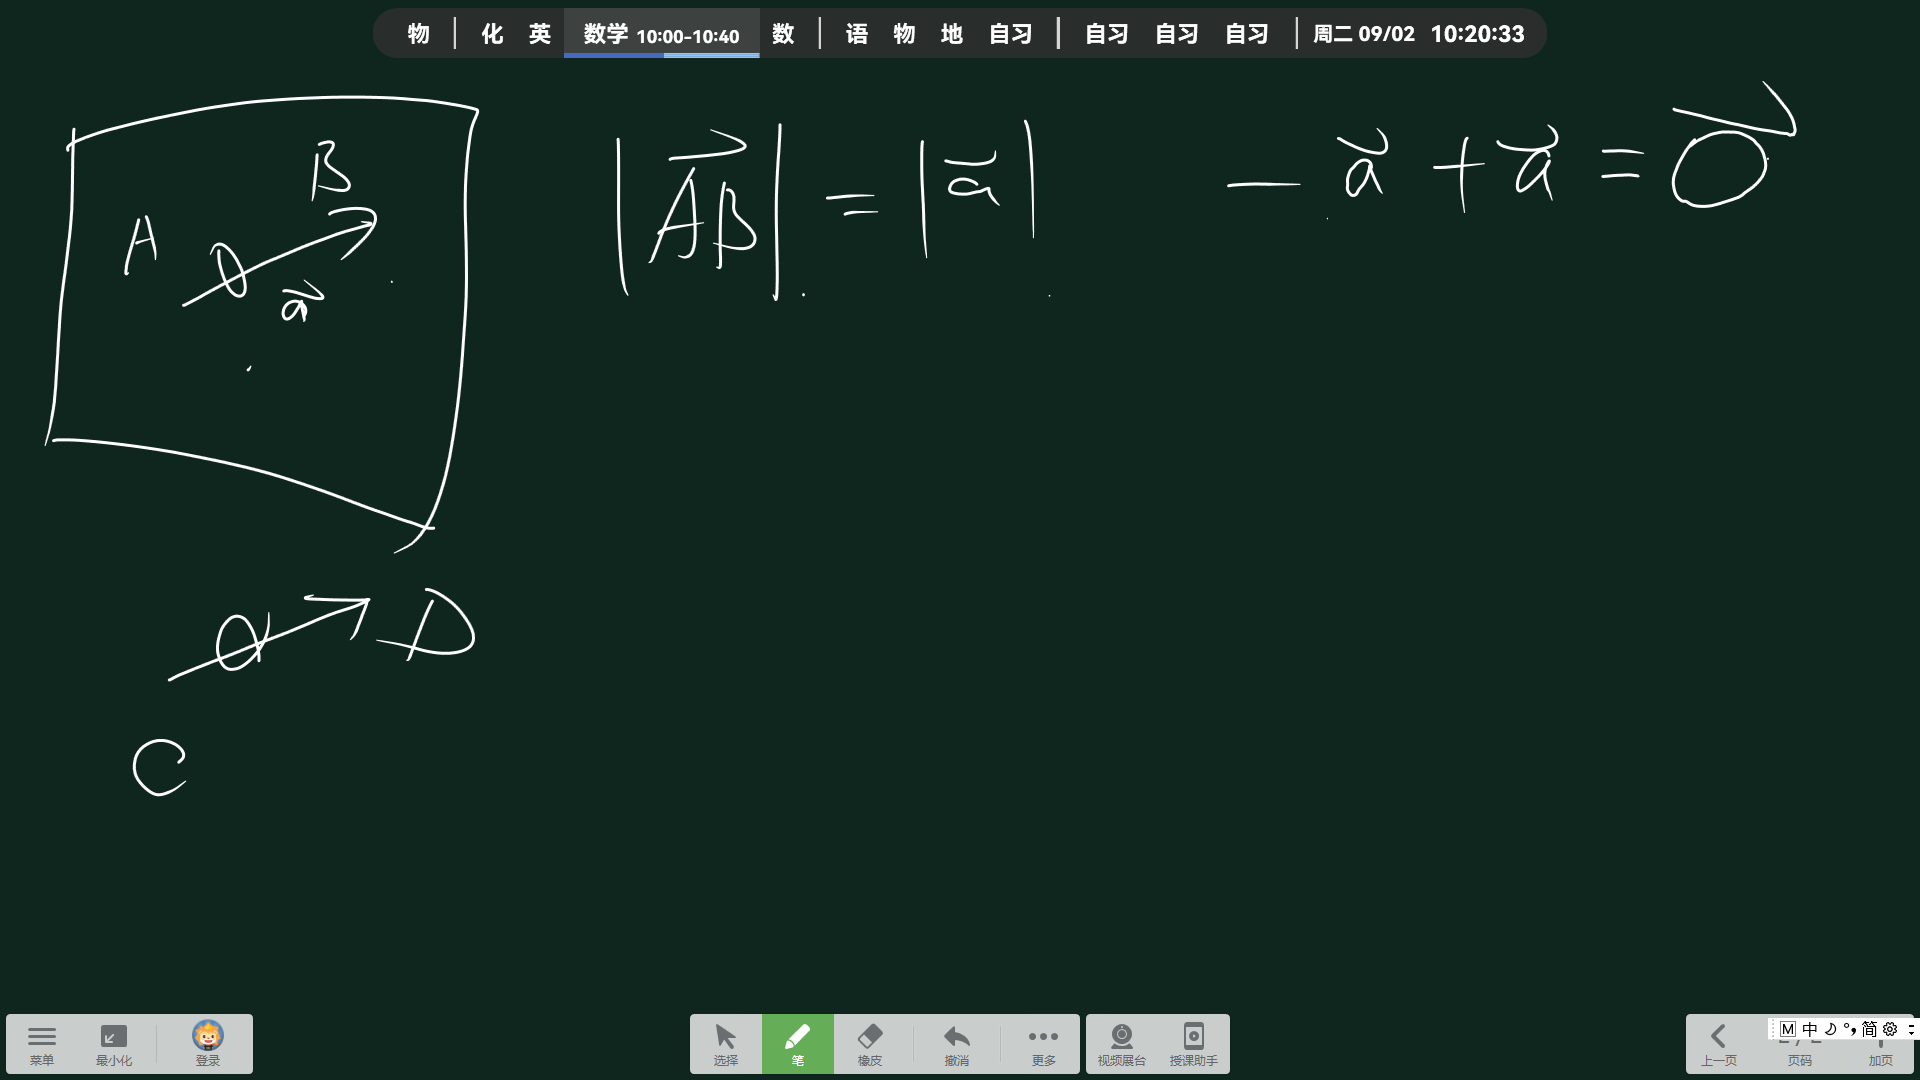 物 | 化 英 数学 10:00-10:40 数 | 语 物 地 自习 | 自习 自习 自习 | 周二 09/02 10:20:33
B
A
a⃗
|A⃗B⃗| = |a⃗|
- a⃗ + a⃗ = 0⃗
a D
C
菜单 最小化 登录
选择 笔 橡皮 撤消 更多 视频展台 授课助手
M 中 简
上一页 页码 加页